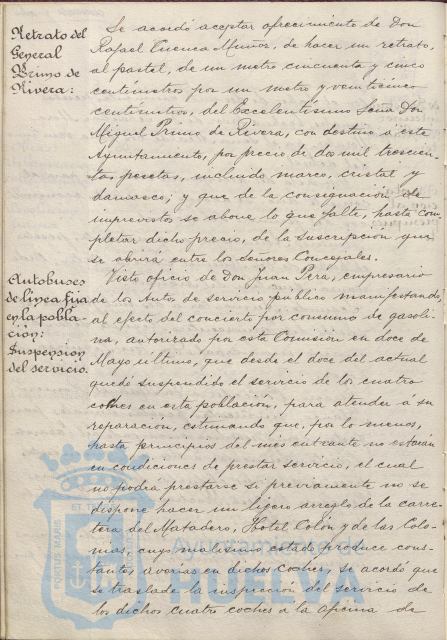 Retrato del
General
Primo de
Rivera:
Se acordó aceptar ofrecimiento de Don
Rafael Cuenca Muñoz, de hacer un retrato,
al pastel, de un metro cincuenta y cinco
centímetros por un metro y veinticinco
centímetros, del Excelentísimo Señor Don
Miguel Primo de Rivera, con destino a este
Ayuntamiento, por precio de dos mil trescien-
tas pesetas, incluido marco, cristal y
damasco; y que de la consignación de
imprevistos se abone lo que falte, hasta com-
pletar dicho precio, de la suscripción que
se abrirá entre los Señores Concejales.
Autobuses
de línea fija
en la pobla-
ción:
Suspension
del servicio.
Visto oficio de Don Juan Pera, empresario
de los Autos de servicio público manifestando,
al efecto del concierto por consumo de gasoli-
na, autorizado por esta Comisión en doce de
Mayo último, que desde el doce del actual
quedó suspendido el servicio de los cuatro
coches en esta población, para atender á su
reparación, estimando que, por lo menos,
hasta principios del mes entrante no estarán
en condiciones de prestar servicio, el cual
no podrá prestarse si previamente no se
dispone hacer un ligero arreglo de la carre-
tera del Matadero, Hotel Colón y de las Colo-
nias, cuyo malísimo estado produce cons-
tantes averías en dichos coches, se acordó que
se traslade la inspección del servicio de
los dichos cuatro coches a la oficina de
PORTUS MARIS
ET TE
Ayuntamiento de
HUELVA